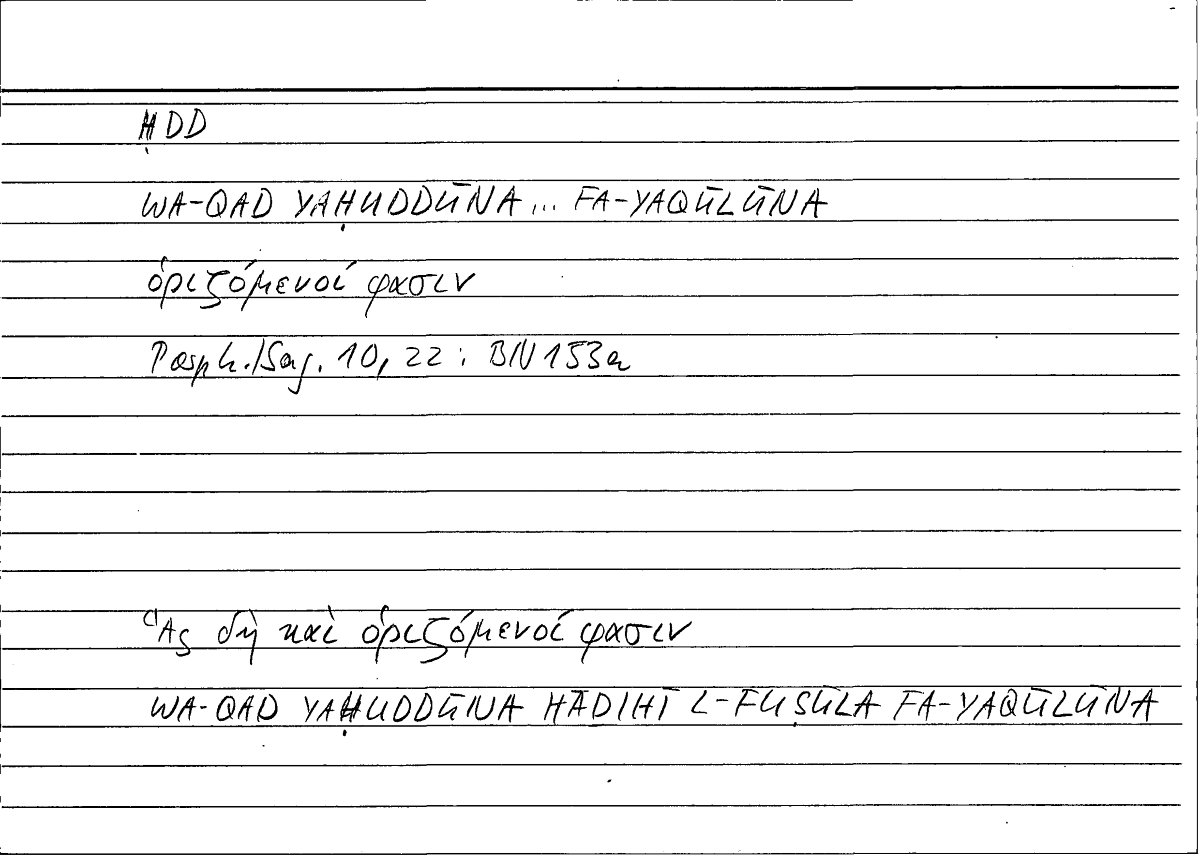 ḤDD
WA-QAD YAḤUDDŪNA... FA-YAQŪLŪNA
ὁριζόμενοί φασιν
Porph./Isag. 10, 22 : BN 153a
Ἃς δὴ καὶ ὁριζόμενοί φασιν
WA-QAD YAḤUDDŪNA HĀḎIHĪ L-FUṢŪLA FA-YAQŪLŪNA